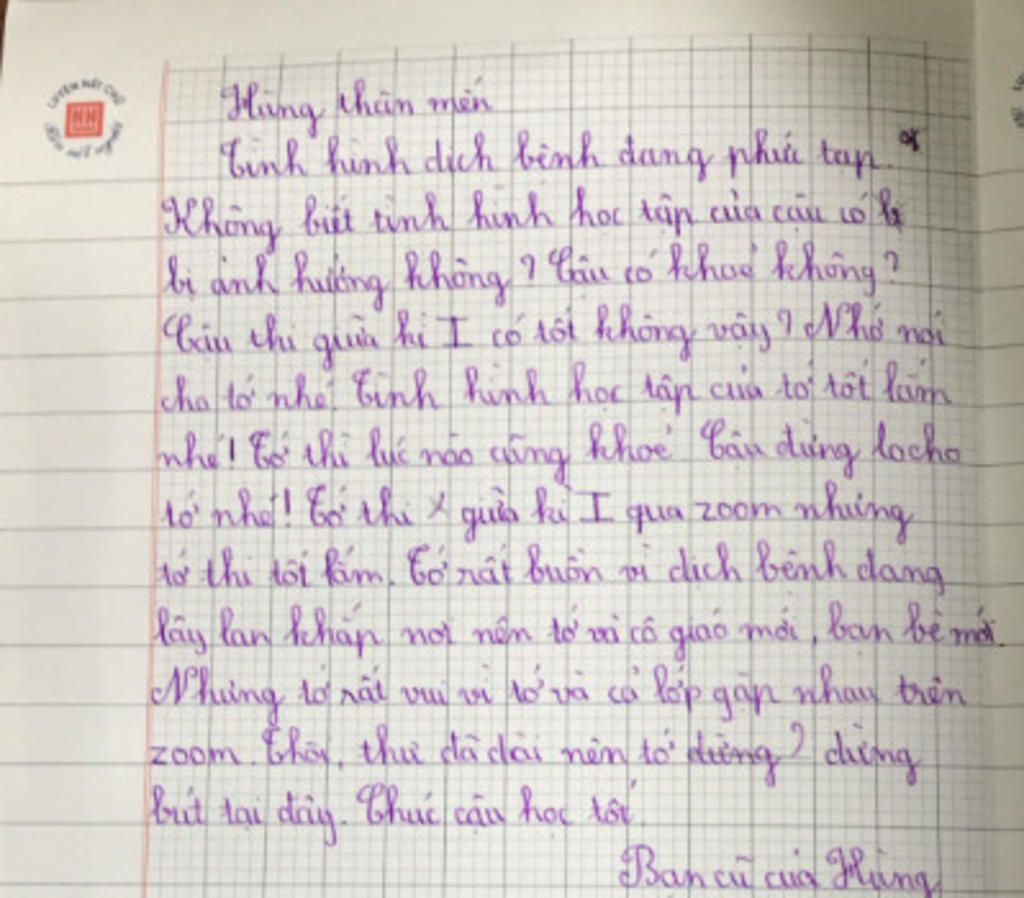 Hùng thân mến
Tình hình dịch bệnh đang phức tạp.
Không biết tình hình học tập của cậu có
bị ảnh hưởng không? Cậu có khoẻ không?
Cậu thi giữa kì I có tốt không vậy? Nhớ nói
cho tớ nhé! Tình hình học tập của tớ tốt lắm
nhé! Tớ thì lúc nào cũng khoẻ Cậu đừng lo cho
tớ nhé! Tớ thi giữa kì I qua zoom nhưng
tớ thi tốt lắm. Tớ rất buồn vì dịch bệnh đang
lây lan khắp nơi nên tớ cô giáo mới, bạn bè mới.
Nhưng tớ rất vui vì tớ và cả lớp gặp nhau trên
zoom. Thôi, thư đã dài nên tớ dừng? dừng
bút tại đây. Chúc cậu học tốt.
Bạn cũ của Hùng